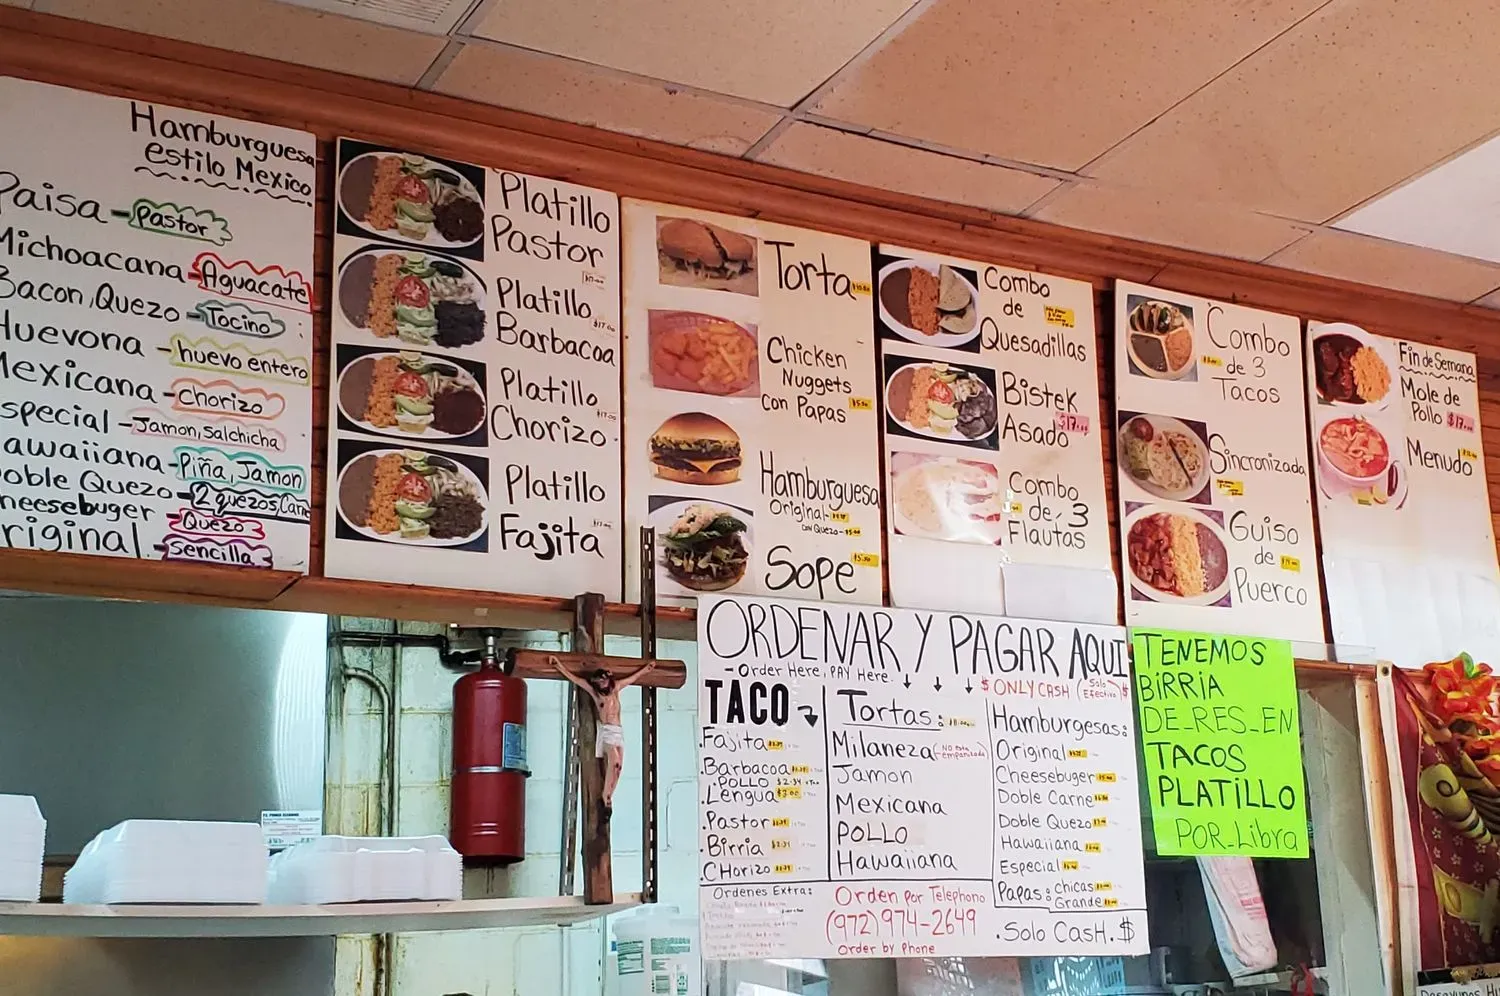 Hamburguesa
estilo Mexico
Paisa - Pastor
Michoacana - Aguacate
Bacon, Quezo - Tocino
Huevona - huevo entero
Mexicana - chorizo
special - Jamon, Salchicha
awaiiana - Piña, Jamon
oble Quezo - 2 quezos, Carne
heesebuger - Quezo
riginal - Sencilla
Platillo
Pastor
Platillo
$17.00
Barbacoa
Platillo
$17.00
Chorizo
Platillo
Fajita
Torta
Chicken
Nuggets
con Papas
Hamburguesa
Original -
con Quezo -
Sope
$5.50
Combo
de
Quesadillas
Bistek
Asado
$17.00
Combo
de 3
Flautas
Combo
de 3
Tacos
Sincronizada
Guiso
de
Puerco
Fin de Semana
Mole de
Pollo $17.00
Menudo
ORDENAR Y PAGAR AQUI
- Order Here, PAY Here.
$ ONLY CASH (Solo Efectivo) $
TACO
.Fajita
.Barbacoa
.POLLO $2.39
.Lengua $3.00
.Pastor
.Birria $2.39
.CHorizo
Ordenes Extra:
Tortas:
Milaneza (NO esta empanizada)
Jamon
Mexicana
POLLO
Hawaiiana
Hamburgesas:
Original
Cheesebuger
Doble Carne
Doble Quezo
Hawaiiana
Especial
Papas: chicas
Grande
Orden por Telephono
(972)974-2649
Order by Phone
.Solo CasH. $
TENEMOS
BiRRiA
DE_RES_EN
TACOS
PLATiLLO
POR_Libra